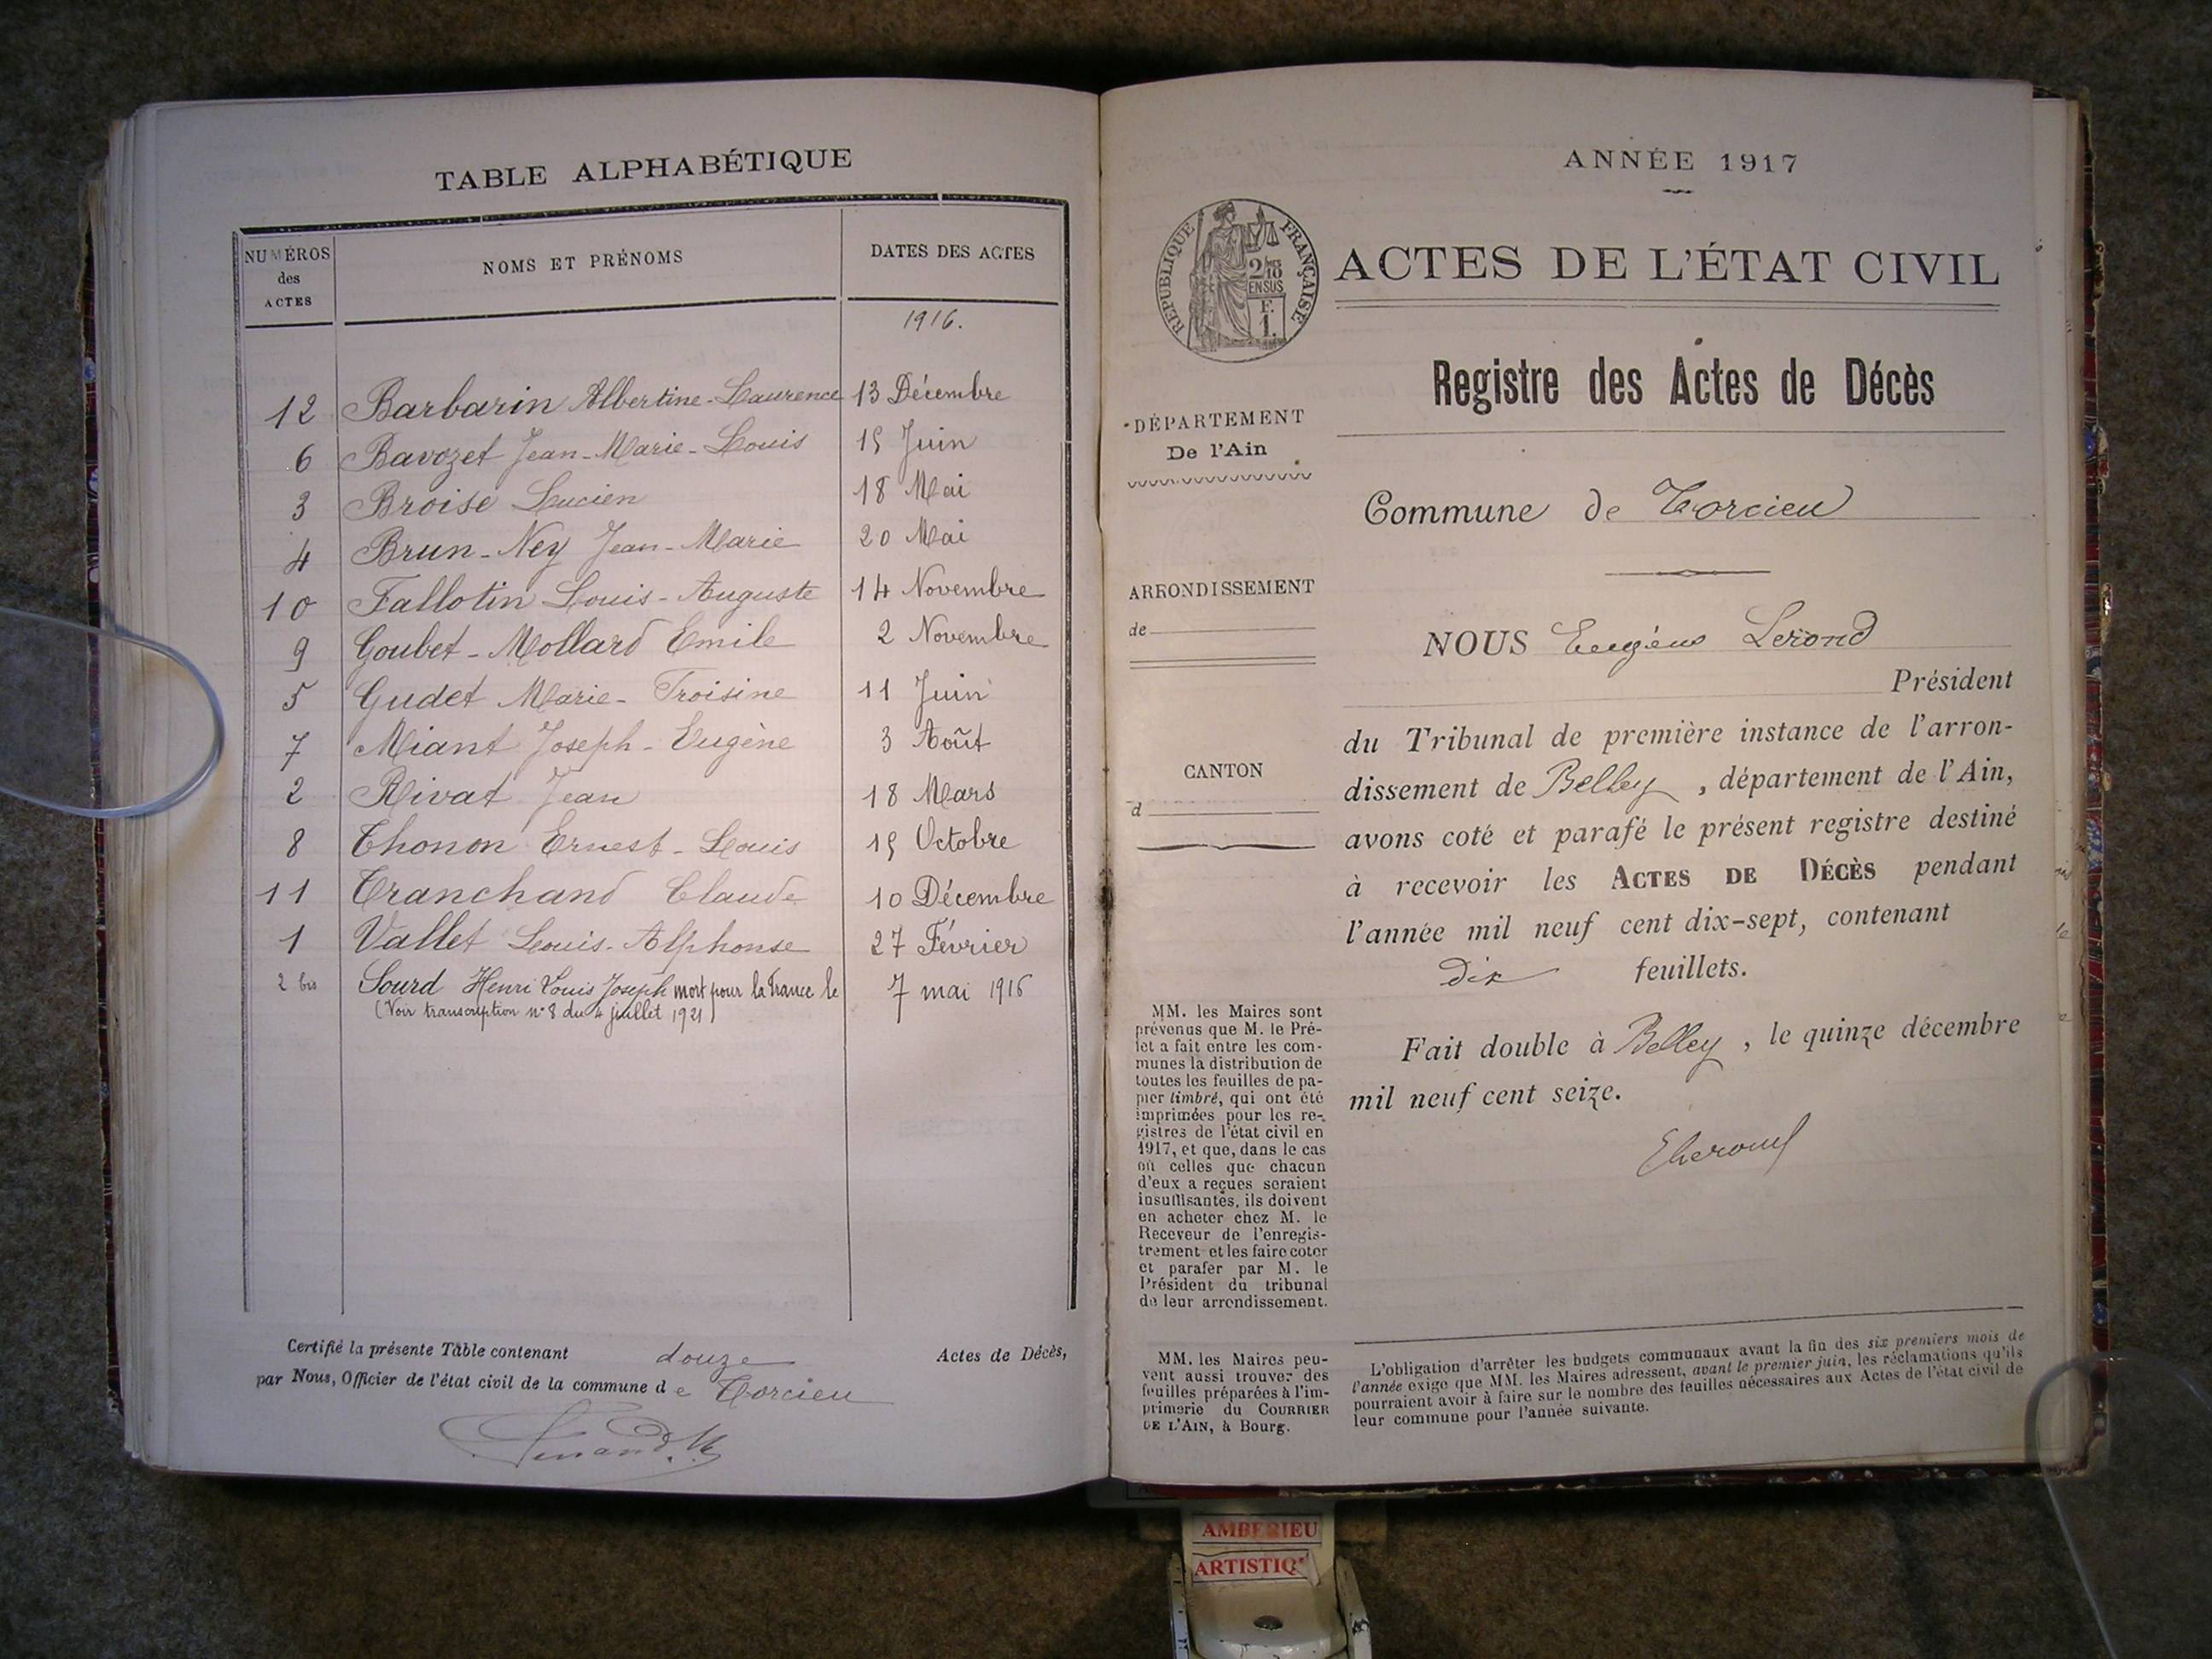 TABLE ALPHABÉTIQUE
NUMÉROS
des
ACTES
NOMS ET PRÉNOMS
DATES DES ACTES
1916.
12 Barbarin Albertine-Laurence 13 Décembre
6 Bavozet Jean-Marie-Louis 15 Juin
3 Broise Lucien 18 Mai
4 Brun-Ney Jean-Marie 20 Mai
10 Fallotin Louis-Auguste 14 Novembre
9 Goubet-Mollard Emile 2 Novembre
5 Gudet Marie-Troisine 11 Juin
7 Miant Joseph-Eugène 3 Août
2 Rivat Jean 18 Mars
8 Thonon Ernest-Louis 15 Octobre
11 Tranchand Claude 10 Décembre
1 Vallet Louis-Alphonse 27 Février
2 bis Sourd Henri Louis Joseph mort pour la France le 7 mai 1916
(Voir transcription n° 8 du 4 juillet 1921)
Certifié la présente Table contenant douze Actes de Décès,
par Nous, Officier de l'état civil de la commune de Torcieu
ANNÉE 1917
RÉPUBLIQUE FRANÇAISE
2/10
EN SUS
F.
1.
ACTES DE L'ÉTAT CIVIL
Registre des Actes de Décès
DÉPARTEMENT
De l'Ain
Commune de Torcieu
ARRONDISSEMENT
de
CANTON
d
NOUS Eugène Lerond
Président
du Tribunal de première instance de l'arron-
dissement de Belley, département de l'Ain,
avons coté et parafé le présent registre destiné
à recevoir les ACTES DE DÉCÈS pendant
l'année mil neuf cent dix-sept, contenant
dix feuillets.
Fait double à Belley, le quinze décembre
mil neuf cent seize.
MM. les Maires sont
prévenus que M. le Pré-
fet a fait entre les com-
munes la distribution de
toutes les feuilles de pa-
pier timbré, qui ont été
imprimées pour les re-
gistres de l'état civil en
1917, et que, dans le cas
où celles que chacun
d'eux a reçues seraient
insuffisantes, ils doivent
en acheter chez M. le
Receveur de l'enregis-
trement et les faire coter
et parafer par M. le
Président du tribunal
de leur arrondissement.
MM. les Maires peu-
vent aussi trouver des
feuilles préparées à l'im-
primerie du COURRIER
DE L'AIN, à Bourg.
L'obligation d'arrêter les budgets communaux avant la fin des six premiers mois de
l'année exige que MM. les Maires adressent, avant le premier juin, les réclamations qu'ils
pourraient avoir à faire sur le nombre des feuilles nécessaires aux Actes de l'état civil de
leur commune pour l'année suivante.
AMBERIEU
ARTISTIQ